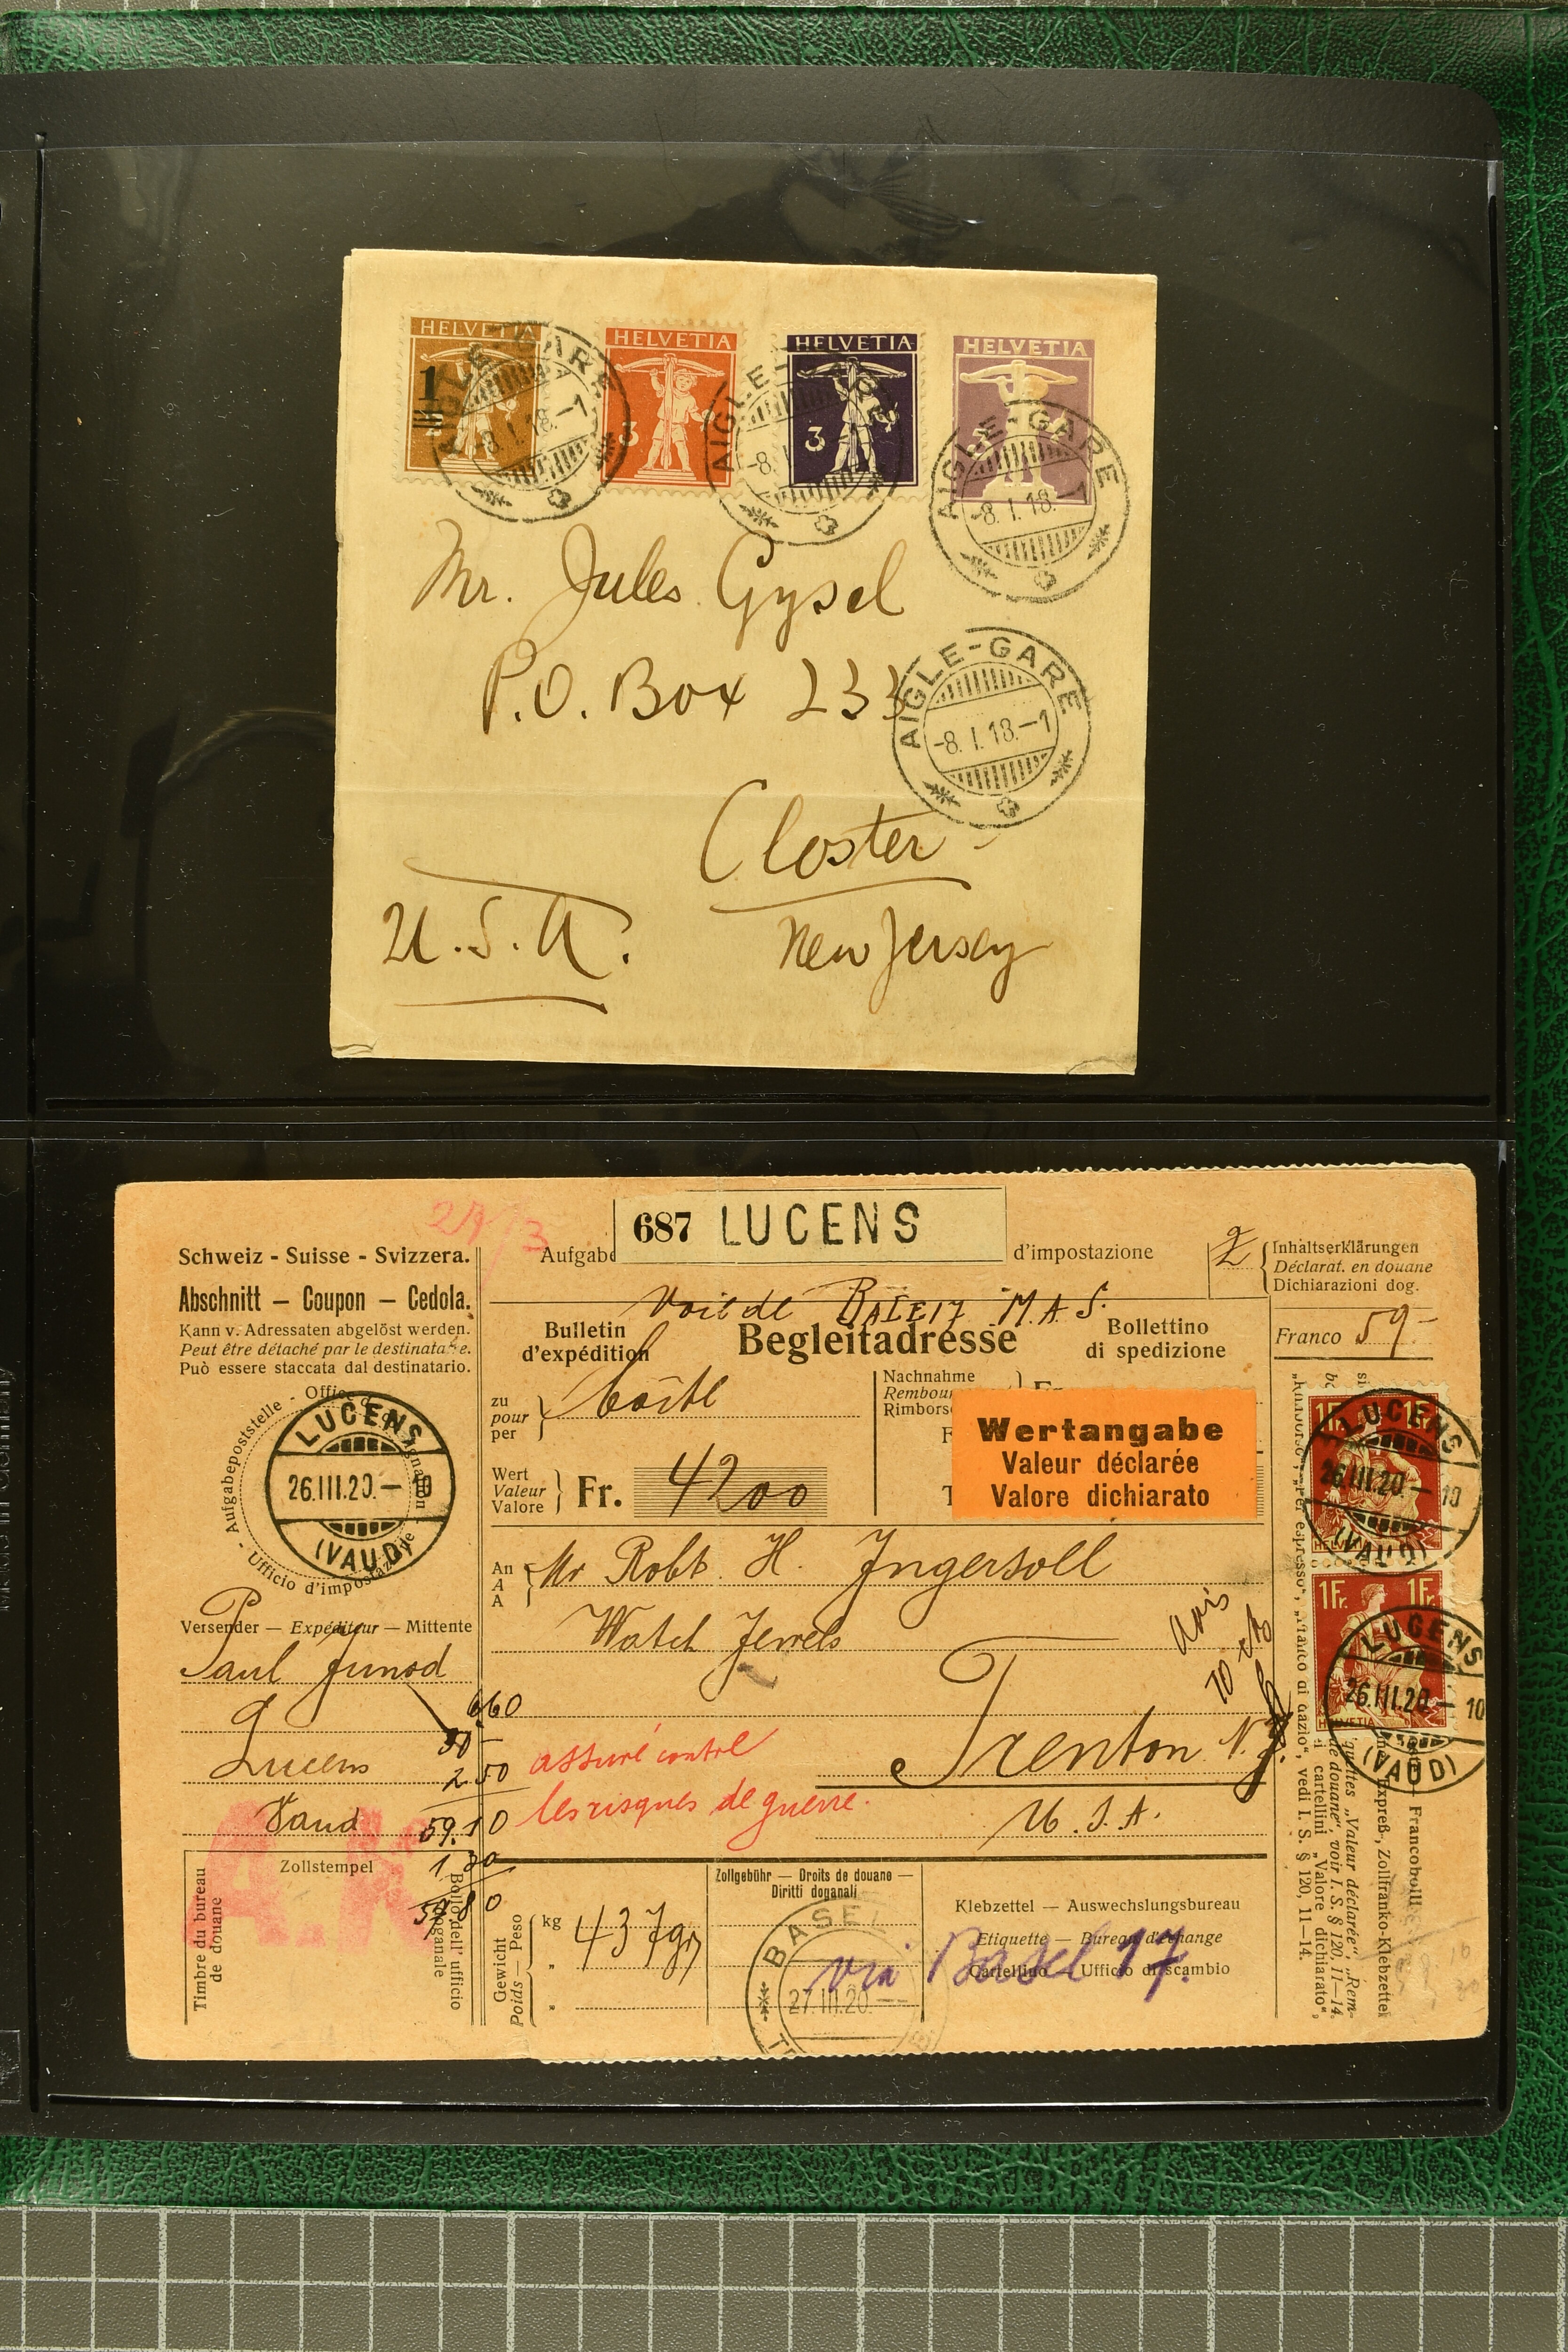 HELVETIA HELVETIA HELVETIA HELVETIA
1 3 3
AIGLE-GARE
-8.I.18.-1
AIGLE-GARE
-8.I.18.-1
Mr. Jules Gysel
P.O. Box 233
AIGLE-GARE
-8.I.18.-1
Closter
U.S.A.
New Jersey
687 LUCENS
Schweiz - Suisse - Svizzera.
Abschnitt — Coupon — Cedola.
Kann v. Adressaten abgelöst werden.
Peut être détaché par le destinataire.
Può essere staccata dal destinatario.
LUCENS
26.III.20.— 10
(VAUD)
Aufgabepoststelle
Ufficio d'impostazione
Versender — Expéditeur — Mittente
Paul Junod
Lucens
Vaud
660
50
2.50
59.10
Zollstempel
Timbre du bureau
de douane
Bollo dell' ufficio
doganale
d'impostazione
2
Inhaltserklärungen
Déclarat. en douane
Dichiarazioni dog.
Bulletin
d'expédition
Begleitadresse
Bollettino
di spedizione
Franco 59.-
zu
pour
per
boîte
Nachnahme
Wert
Valeur
Valore
Fr. 4200
Wertangabe
Valeur déclarée
Valore dichiarato
An
A
A
Mr Robt. H. Ingersoll
Watch Jewels
Trenton N.J.
U.S.A.
avis
assuré contre
les risques de guerre.
Gewicht
Poids — Peso
kg 437 gr
Zollgebühr — Droits de douane —
Diritti doganali
BASEL
27.III.20.—
Klebzettel — Auswechslungsbureau
Etiquette — Bureau d'échange
Cartellino — Ufficio di scambio
via Basel 17.
1Fr. 1Fr.
LUCENS
26.III.20.— 10
(VAUD)
HELVETIA
1Fr. 1Fr.
LUCENS
26.III.20.— 10
(VAUD)
HELVETIA